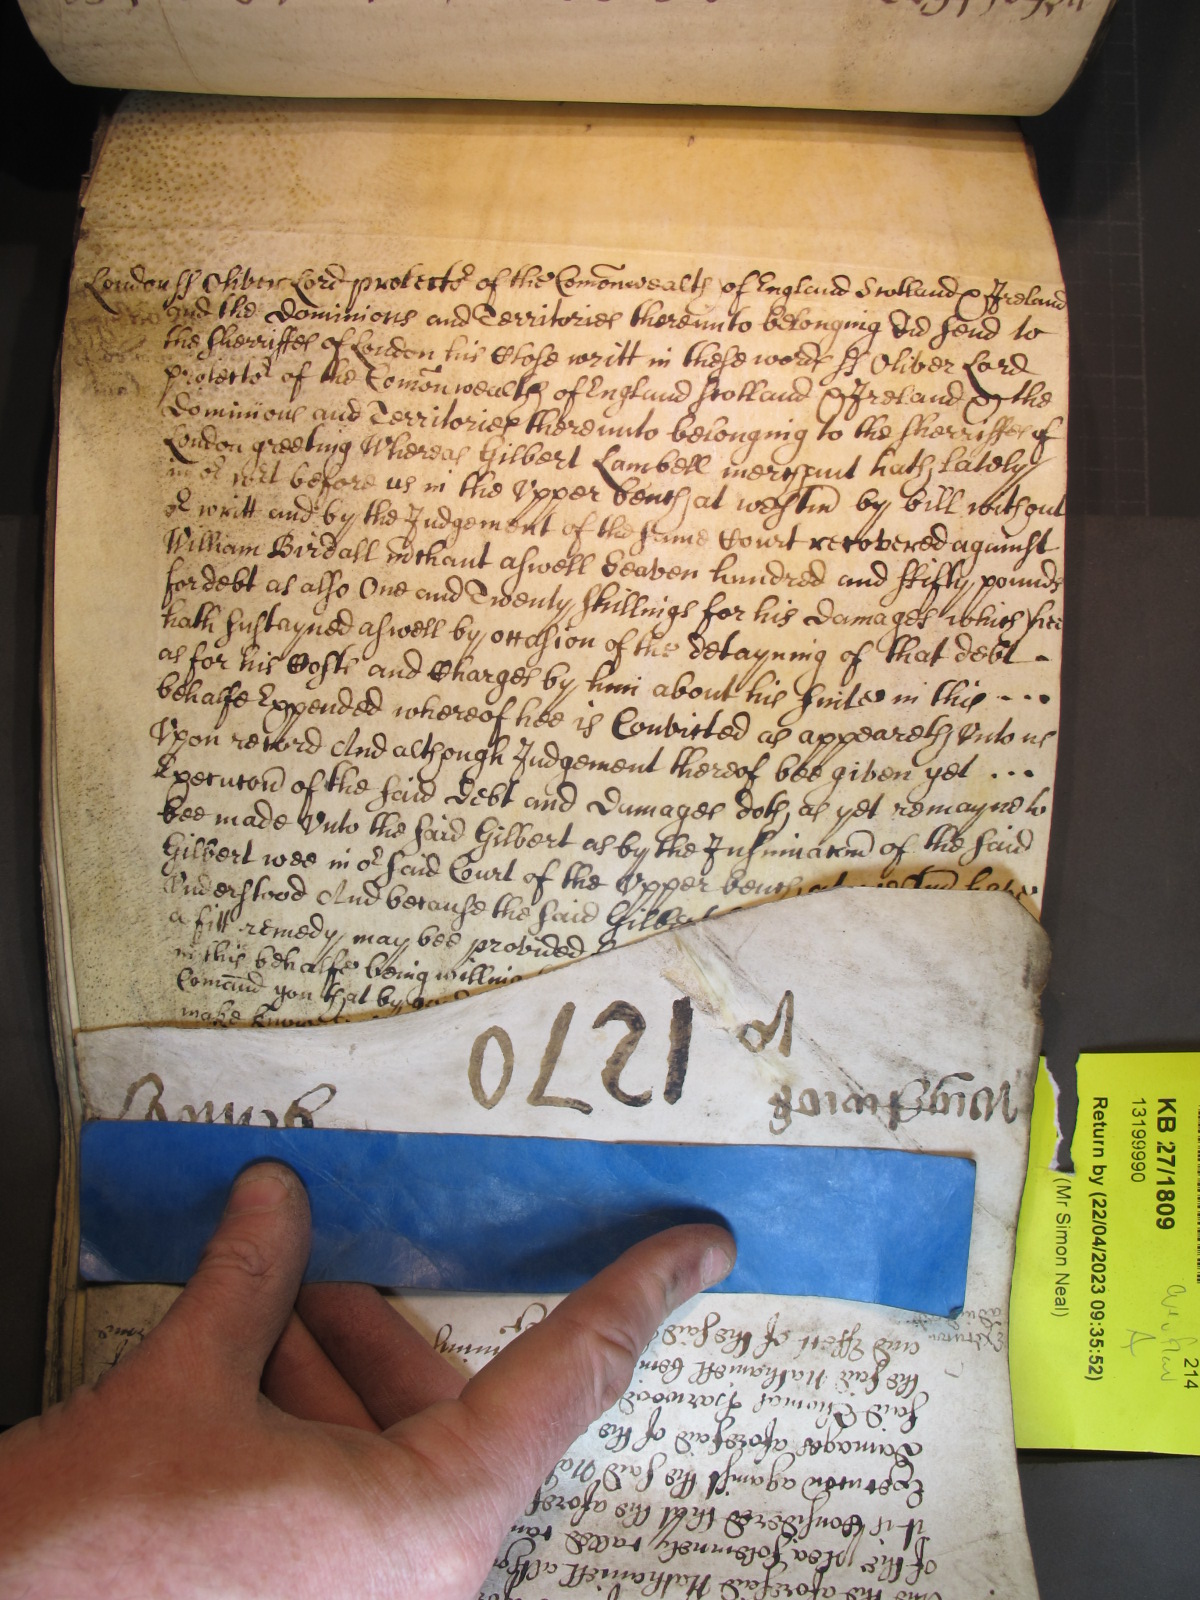 London ss Oliver Lord protector of the Com̄onwealth of England Scotland & Ireland
and the Dominions and Territories thereunto belonging did send to
the Sherriffes of London his Close writt in these words ss Oliver Lord
protector of the Com̄onwealth of England Scotland & Ireland & the
Dominions and Territories thereunto belonging to the Sherriffes of
London greeting Whereas Gilbert Lambell merchant hath lately
in or Court before us in the Upper bench at Westm̄ by bill without
or writt and by the Judgement of the same Court recovered against
William Birdall m̄chant aswell Seaven hundred and fifty pounds
for debt as also One and Twenty shillings for his Damages which hee
hath sustayned aswell by occasion of the detayning of that debt -
as for his Costs and Charges by him about his suite in this ---
behalfe Expended whereof hee is Convicted as appeareth Unto us
Upon record And although Judgement thereof bee given yet ...
Execucōn of the said Debt and Damages doth as yet remayne to
bee made Unto the said Gilbert as by the Insinuacōn of the said
Gilbert wee in or said Court of the Upper bench at Westm̄ have
Understood And because the said Gilbert
a fitt remedy may bee provided
in this behalfe being willing
Com̄and you that by
make knowne
ro 1570
KB 27/1809
13199990
Return by (22/04/2023 09:35:52)
(Mr Simon Neal)
214
and Effect of the said
the said Nathaniell
said Thomas Harwood
Damages aforesaid of the
Execucōn against the said Nat
it is Considered that the aforesd
of the plea solemnely called
and the aforesaid Nathaniell